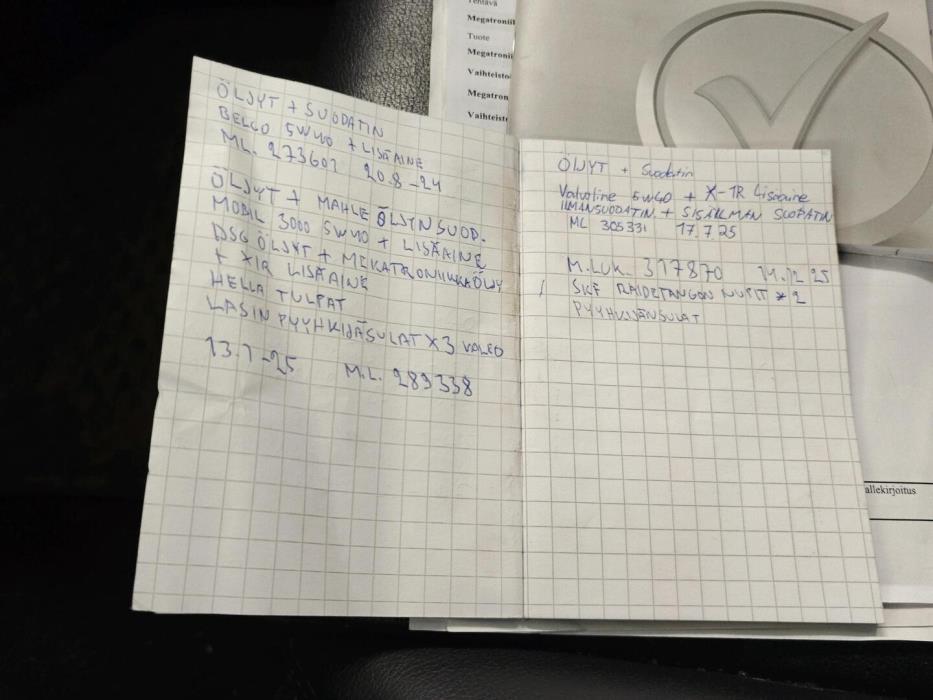 ÖLJYT + SUODATIN
BELGO 5W40 + LISÄAINE
ML. 273601 20.8-24
ÖLJYT + MAHLE ÖLJYNSUOD.
MOBIL 3000 5W40 + LISÄAINE
DSG ÖLJYT + MEKATRONIIKKAÖLJY
+ X1R LISÄAINE
HELLA TULPAT
LASIN PYYHKIJÄSULAT X3 VALEO
13.1-25 M.L. 289338
ÖLJYT + Suodatin
Valvoline 5W40 + X-1R Lisäaine
ILMANSUODATIN + SISÄILMAN SUODATIN
ML 305331 17.7.25
M.LUK. 317870 14.12 25
SKF RAIDETANGON NUPIT *2
PYYHKIJÄNSULAT
Tehtävä
Megatroniik
Tuote
Megatronii
Vaihteisto
Megatron
Vaihteist
allekirjoitus